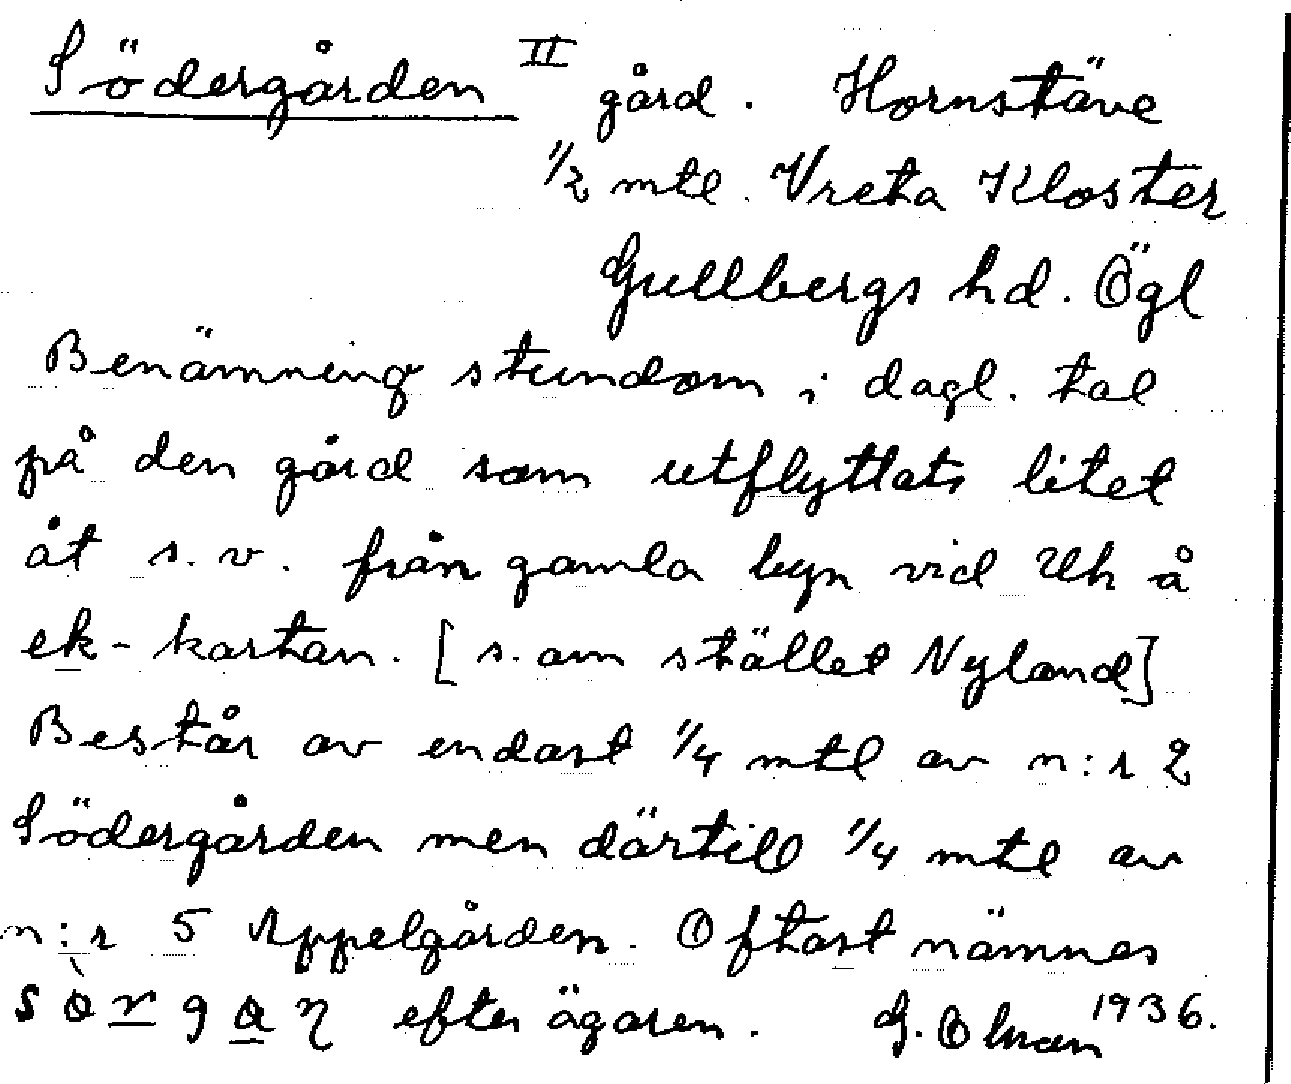 Södergården II gård. Hornstäve
1/2 mtl. Vreta Kloster
Gullbergs hd. Ögl
Benämning stundom i dagl. tal
på den gård som utflyttats litet
åt s.v. från gamla byn vid Uh å
ek-kartan. [s. om stället Nyland]
Består av endast 1/4 mtl av n:r 2
Södergården men därtill 1/4 mtl av
n:r 5 Appelgården. Oftast nämnes
efter ägaren. G. Olson 1936.